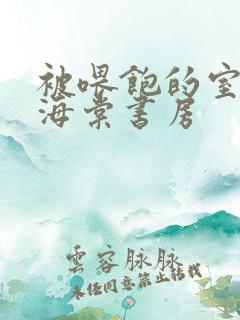 被喂饱的室
海棠书房
雲容脉脉
未经同意禁止转载